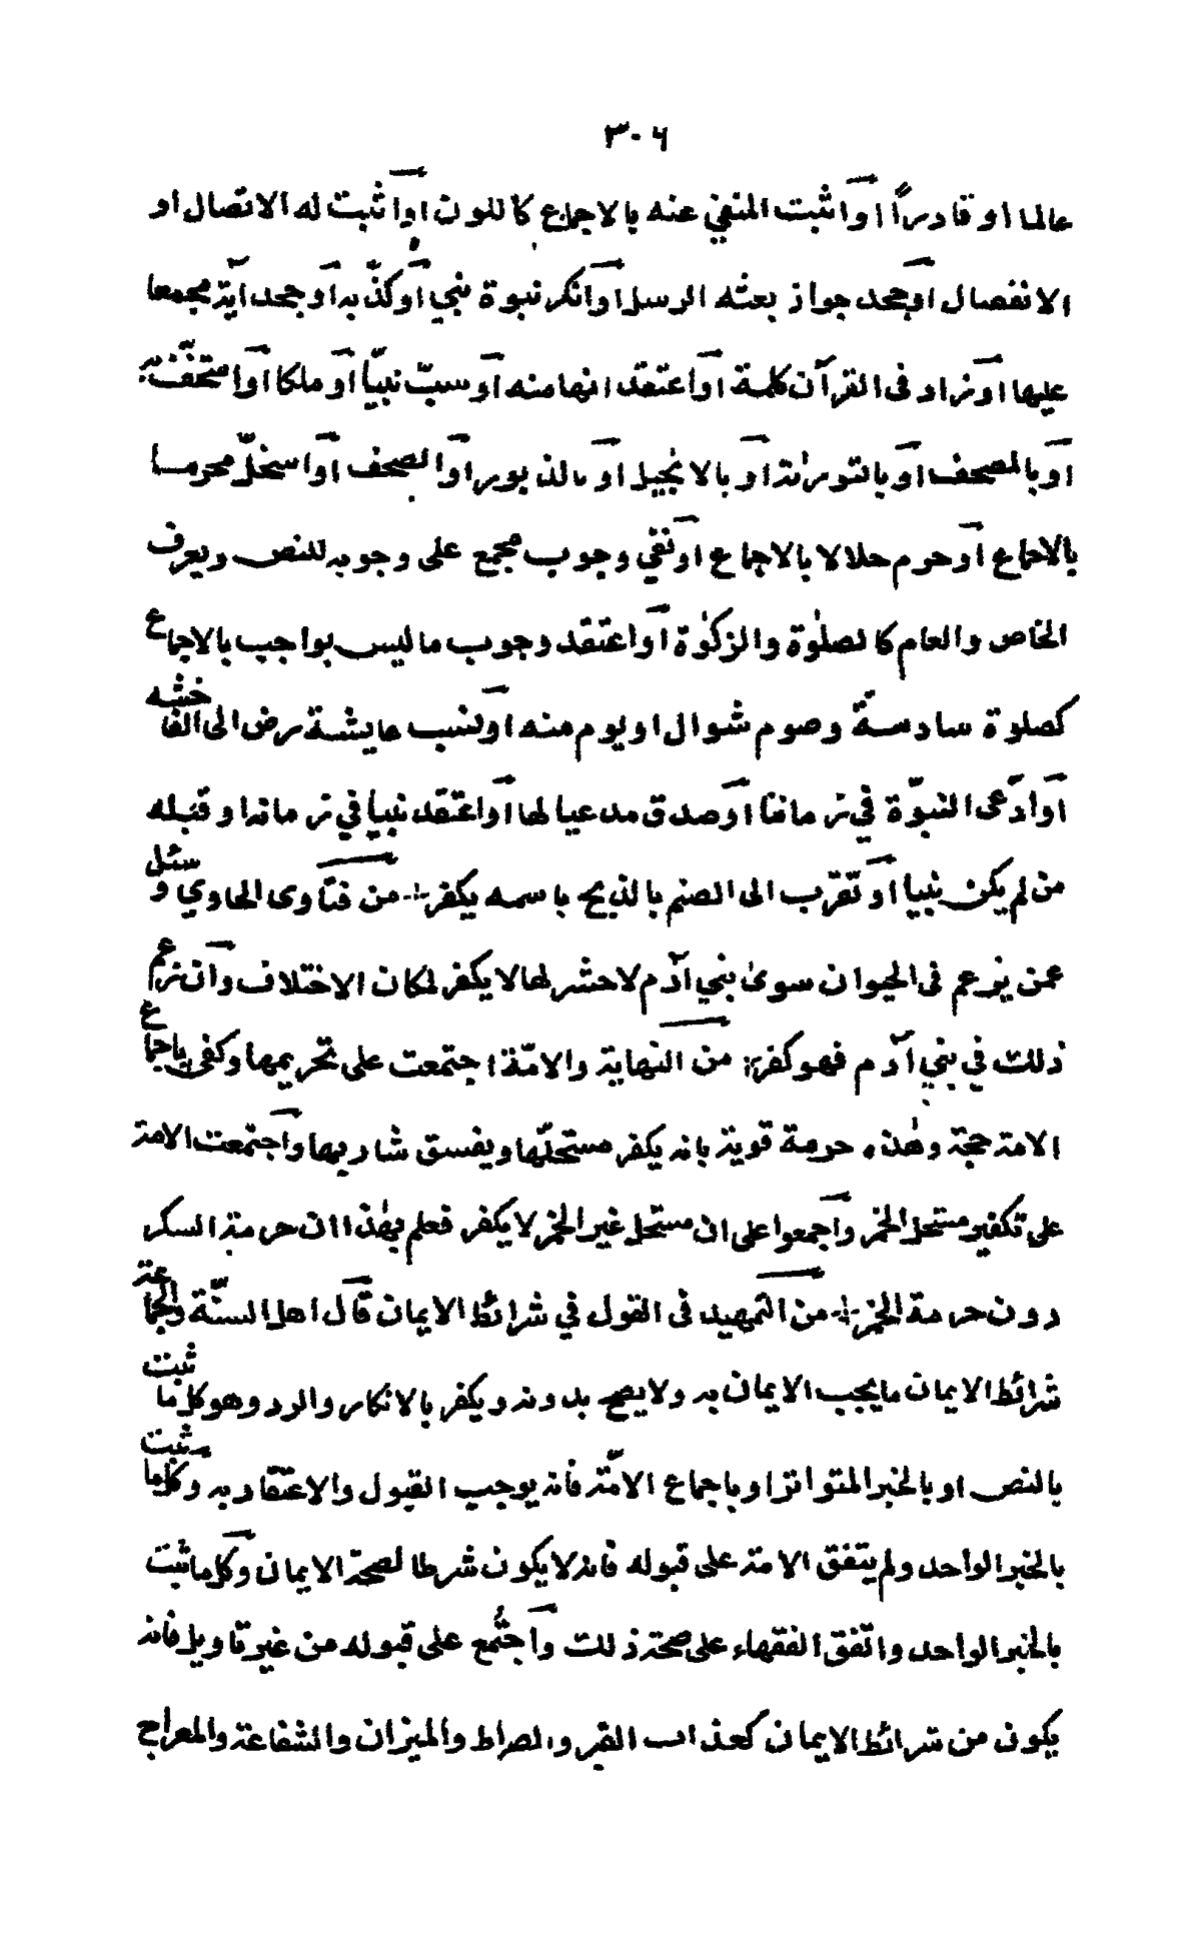 ٣٠٦
عالما او قادرًا او اثبت المنفي عنه بالاجماع كاللون او اثبت له الاتصال او
الانفصال او جحد جواز بعثه الرسل او انكر نبوة نبي او كذّبه او جحد آية مجمعا
عليها او زاد فى القرآن كلمة او اعتقد انها منه او سبّ نبيّا او ملكا او استخفّ به
او بالمصحف او بالتورٰىة او بالانجيل او بالذبور او الصحف او استحلّ محرما
بالاجماع او حرم حلالا بالاجماع او نفي وجوب مجمع على وجوبه للنص ويعرف
الخاص والعام كالصلٰوة والزكٰوة او اعتقد وجوب ما ليس بواجب بالاجماع
كصلوة سادسة وصوم شوال او يوم منه او نسب عايشة رض الى الفاخشه
او ادّعى النبوّة في زماننا او صدق مدعيا لها او اعتقد نبيا في زمانه او قبله
من لم يكن نبيا او تقرّب الى الصنم بالذبح باسمه يكفر من فتاوى الحاوي وسئل
عمن يزعم فى الحيوان سوى بني آدم لا حشر لها لا يكفر لمكان الاختلاف وان زعم
ذلك في بني آدم فهو كفر من النهاية والامّة اجتمعت على تحريمها وكفى باجماع
الامة حجة وهٰذه حرمة قوية بانه يكفر مستحلّها ويفسق شاربها واجتمعت الامة
على تكفير مستحل الخمر واجمعوا على ان مستحل غير الخمر لا يكفر فعلم بهٰذا ان حرمة السكر
دون حرمة الخمر من التمهيد فى القول في شرائط الايمان قال اهل السنّة والجماعة
شرائط الايمان ما يجب الايمان به ولا يصح بدونه ويكفر بالانكار والرد وهو كل ما ثبت
بالنص او بالخبر المتواتر او باجماع الامّة فانه يوجب القبول والاعتقاد به وكل ما ثبت
بالخبر الواحد ولم يتفق الامة على قبوله فانه لا يكون شرطا لصحة الايمان وكل ما ثبت
بالخبر الواحد واتفق الفقهاء على صحة ذلك واجتُمع على قبوله من غير تاويل فانه
يكون من شرائط الايمان كعذاب القبر والصراط والميزان والشفاعة والمعراج